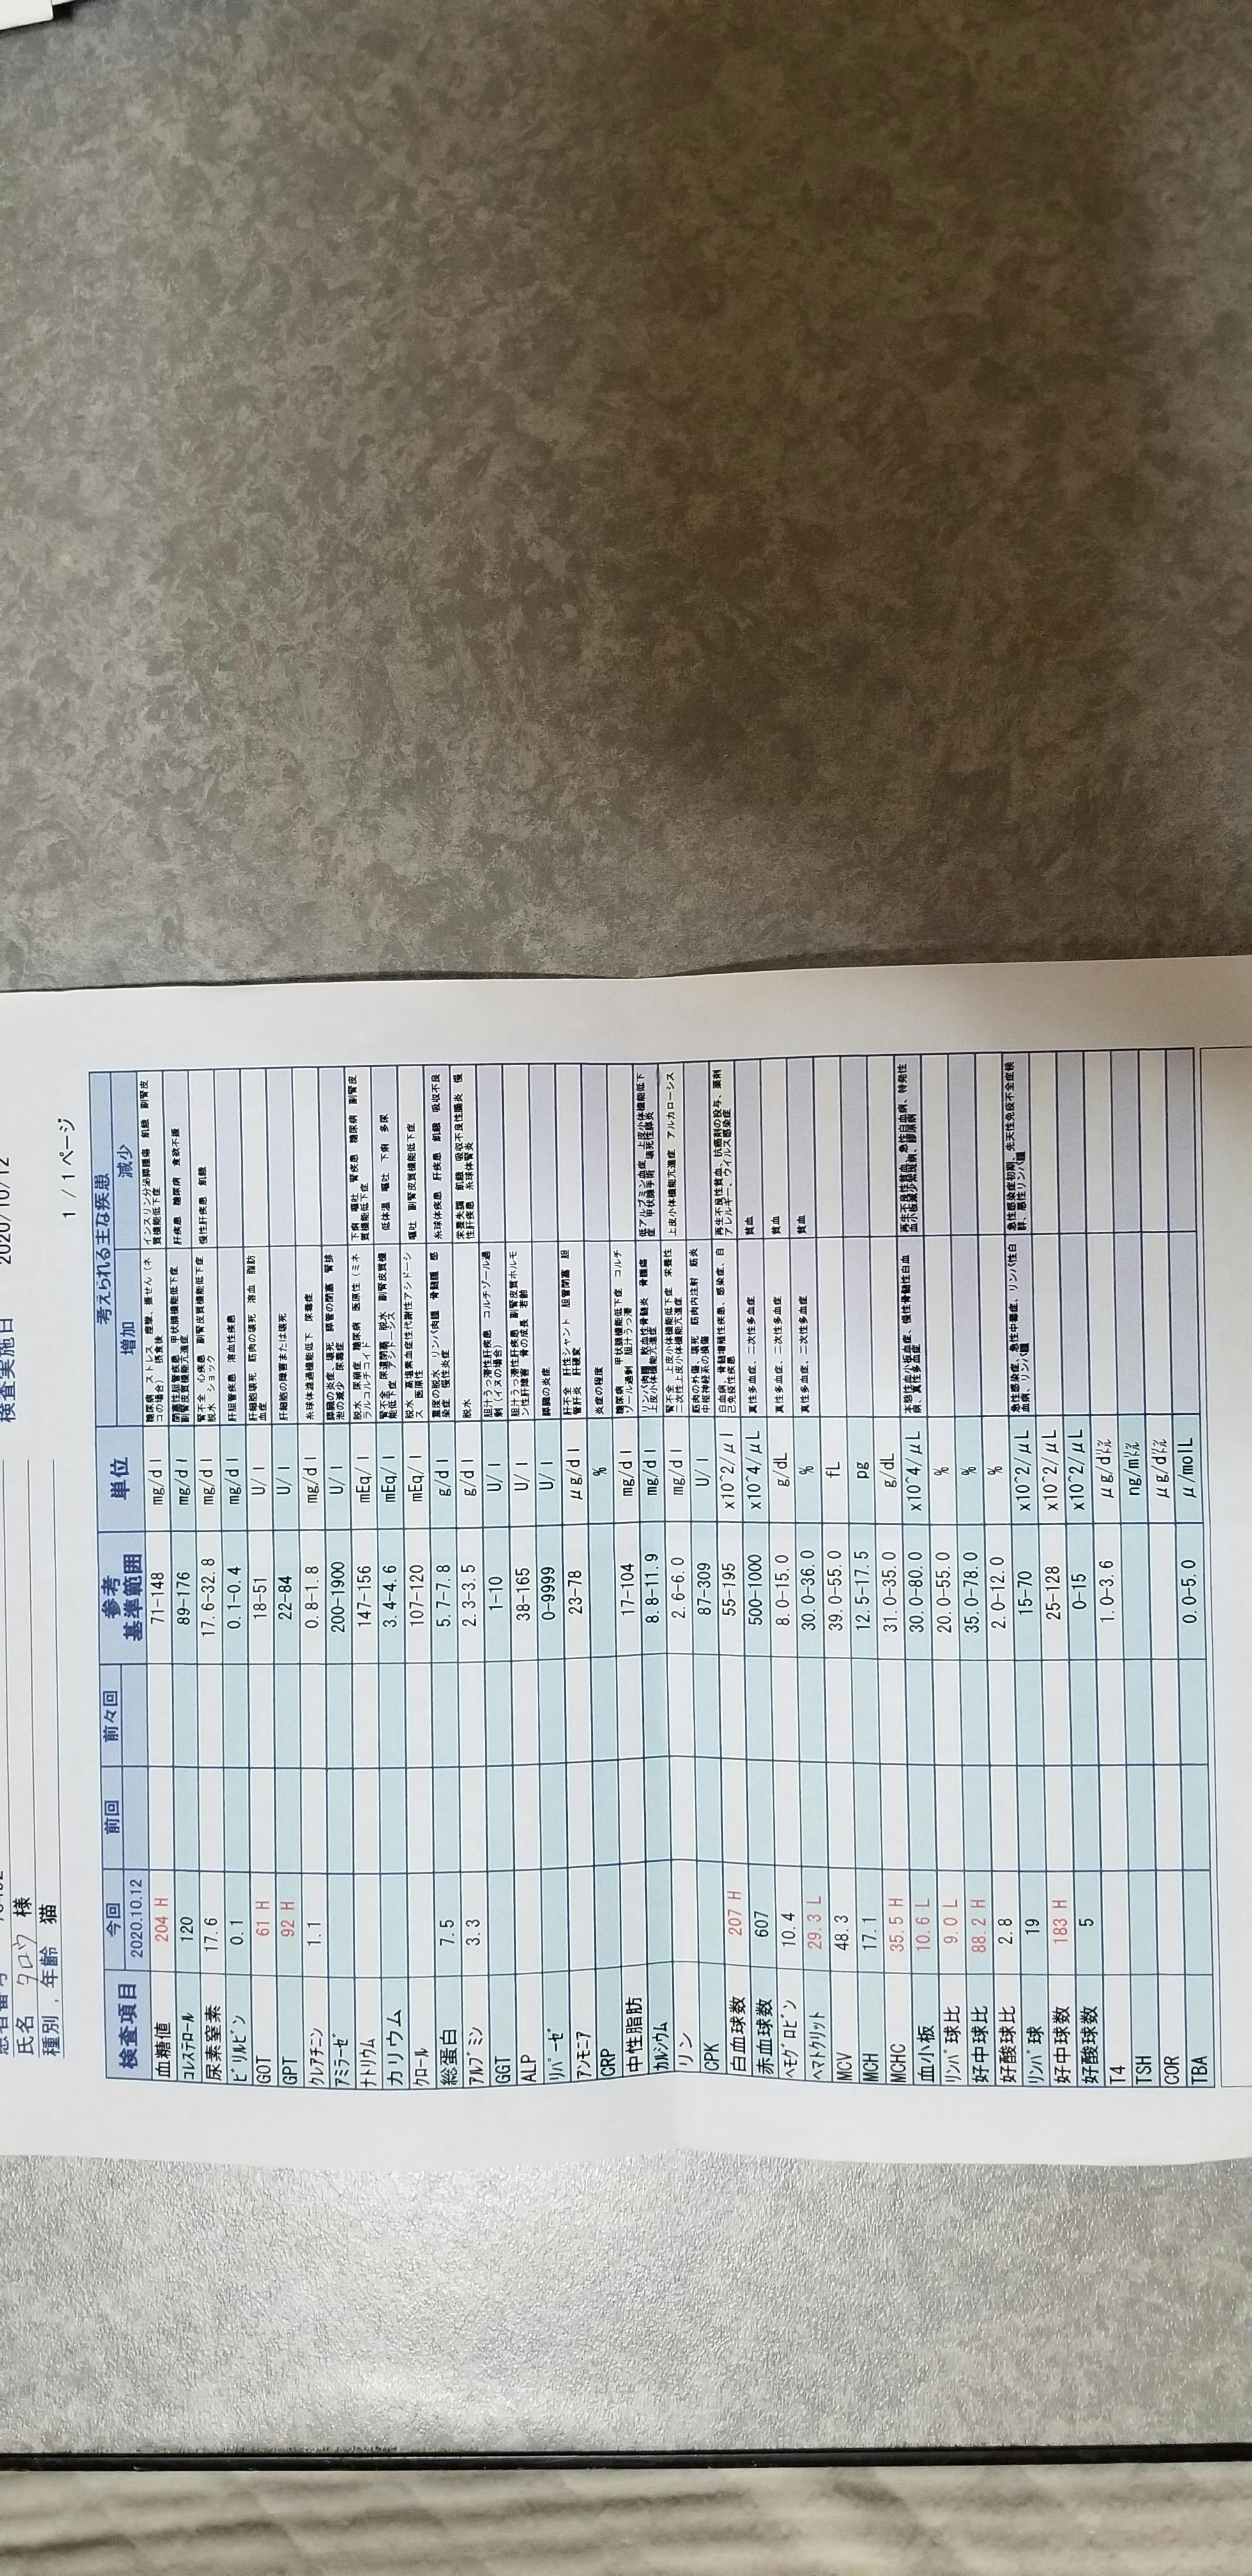 検査実施日 2020/10/12
氏名 タロウ 様
種別，年齢 猫
1 / 1 ページ
検査項目 今回 前回 前々回 参考基準範囲 単位 考えられる主な疾患
2020.10.12 増加 減少
血糖値 204 H 71-148 mg/dl 糖尿病 ストレス 痙攣、畳せん（ネコの場合） 摂食後 インスリン分泌膵腫傷 飢餓 副腎皮質機能低下症
ｺﾚｽﾃﾛｰﾙ 120 89-176 mg/dl 閉塞性胆管疾患 甲状腺機能低下症 副腎皮質機能亢進症 肝疾患 糖尿病 食欲不振
尿素窒素 17.6 17.6-32.8 mg/dl 腎不全 心疾患 副腎皮質機能低下症 脱水 ショック 慢性肝疾患 飢餓
ﾋﾞﾘﾙﾋﾞﾝ 0.1 0.1-0.4 mg/dl 肝胆管疾患 溶血性疾患
GOT 61 H 18-51 U/l 肝細胞壊死 筋肉の壊死 溶血 脂肪血症
GPT 92 H 22-84 U/l 肝細胞の障害または壊死
ｸﾚｱﾁﾆﾝ 1.1 0.8-1.8 mg/dl 糸球体濾過機能低下 尿毒症
ｱﾐﾗｰｾﾞ 200-1900 U/l 膵臓の炎症、壊死 膵管の閉塞 腎排泄の減少 尿毒症
ﾅﾄﾘｳﾑ 147-156 mEq/l 脱水 尿崩症 糖尿病 医原性（ミネラルコルチコイド 下痢 嘔吐 腎疾患 糖尿病 副腎皮質機能低下症
カリウム 3.4-4.6 mEq/l 腎不全 尿道閉塞 脱水 副腎皮質機能低下症 アシドーシス 低体温 嘔吐 下痢 多尿
ｸﾛｰﾙ 107-120 mEq/l 脱水 高塩素血症性代謝性アシドーシス 医原性 嘔吐 副腎皮質機能低下症
総蛋白 7.5 5.7-7.8 g/dl 重度の脱水 リンパ肉腫 骨髄腫 感染症 慢性炎症 糸球体疾患 肝疾患 飢餓 吸収不良
ｱﾙﾌﾞﾐﾝ 3.3 2.3-3.5 g/dl 脱水 栄養失調 飢餓 吸収不良性腸炎 慢性肝疾患 糸球体腎炎
GGT 1-10 U/l 胆汁うっ滞性肝疾患 コルチゾール過剰（イヌの場合）
ALP 38-165 U/l 胆汁うっ滞性肝疾患 副腎皮質ホルモン性肝障害 骨の成長 若齢
ﾘﾊﾟｰｾﾞ 0-9999 U/l 膵臓の炎症
ｱﾝﾓﾆｱ 23-78 μg/dl 肝不全 肝性シャント 胆管閉塞 胆管肝炎 肝硬変
CRP % 炎症の程度
中性脂肪 17-104 mg/dl 糖尿病 甲状腺機能低下症 コルチゾール過剰 胆汁うっ滞
ｶﾙｼｳﾑ 8.8-11.9 mg/dl リンパ肉腫 敗血性骨髄炎 骨腫瘍 上皮小体機能亢進症 低アルブミン血症 上皮小体機能低下症 甲状腺手術 壊死性膵炎
リン 2.6-6.0 mg/dl 腎不全 上皮小体機能低下症 栄養性二次性上皮小体機能亢進症 上皮小体機能亢進症 アルカローシス
CPK 87-309 U/l 筋肉の外傷、壊死 筋肉内注射 筋炎 中枢神経系の損傷
白血球数 207 H 55-195 x10^2/μl 白血病、骨髄増殖性疾患、感染症、自己免疫性疾患 再生不良性貧血、抗癌剤の投与、薬剤アレルギー、ウィルス感染症
赤血球数 607 500-1000 x10^4/μL 真性多血症、二次性多血症 貧血
ﾍﾓｸﾞﾛﾋﾞﾝ 10.4 8.0-15.0 g/dL 真性多血症、二次性多血症 貧血
ﾍﾏﾄｸﾘｯﾄ 29.3 L 30.0-36.0 % 真性多血症、二次性多血症 貧血
MCV 48.3 39.0-55.0 fL
MCH 17.1 12.5-17.5 pg
MCHC 35.5 H 31.0-35.0 g/dL
血小板 10.6 L 30.0-80.0 x10^4/μL 本態性血小板血症、慢性骨髄性白血病、真性多血症 再生不良性貧血、急性白血病、特発性血小板減少紫斑病、膠原病
ﾘﾝﾊﾟ球比 9.0 L 20.0-55.0 %
好中球比 88.2 H 35.0-78.0 %
好酸球比 2.8 2.0-12.0 %
ﾘﾝﾊﾟ球 19 15-70 x10^2/μL 急性感染症、急性中毒症、リンパ性白血病、リンパ腫 急性感染症初期、先天性免疫不全症候群、悪性リンパ腫
好中球数 183 H 25-128 x10^2/μL
好酸球数 5 0-15 x10^2/μL
T4 1.0-3.6 μg/dﾘｯﾄﾙ
TSH ng/mﾘｯﾄﾙ
COR μg/dﾘｯﾄﾙ
TBA 0.0-5.0 μ/molL